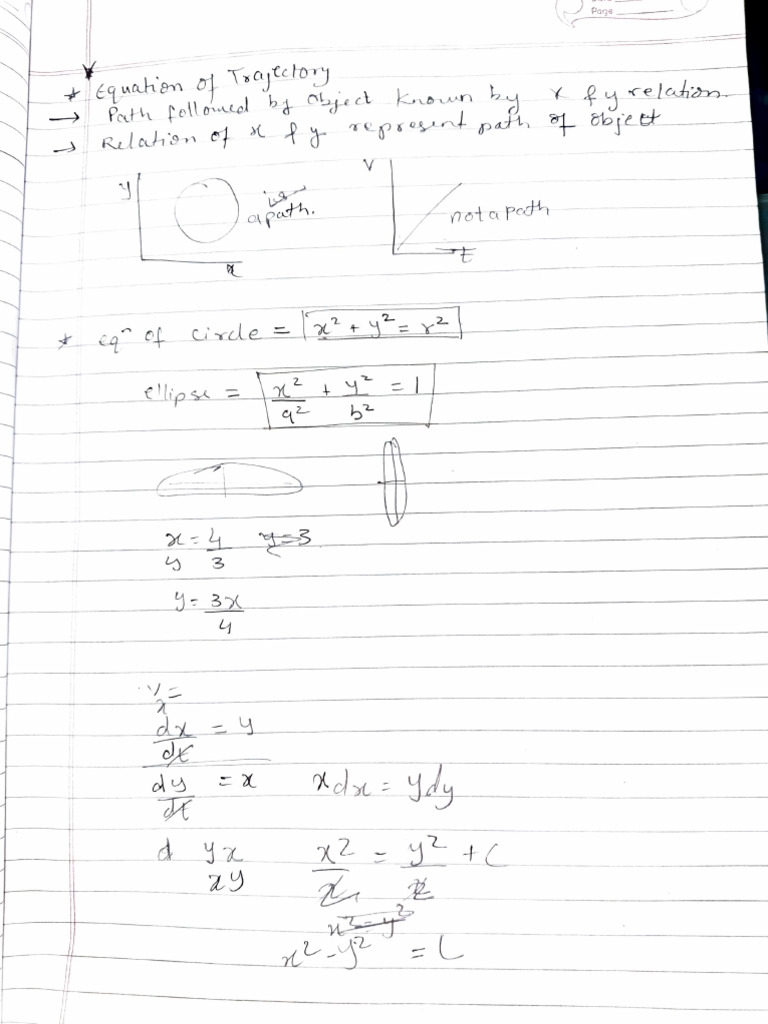 Page
* Equation of Trajectory
→ Path followed by object known by x & y relation
→ Relation of x & y represent path of object
y
is
a path.
x
v
not a path
t
* eqⁿ of circle = x² + y² = r²
ellipse = x²/a² + y²/b² = 1
x/y = 4/3 y=3
y = 3x/4
v =
x
dx/dt = y
dy/dt = x x dx = y dy
d yx x²/2 = y²/2 + C
xy
x² - y²
x² - y² = C